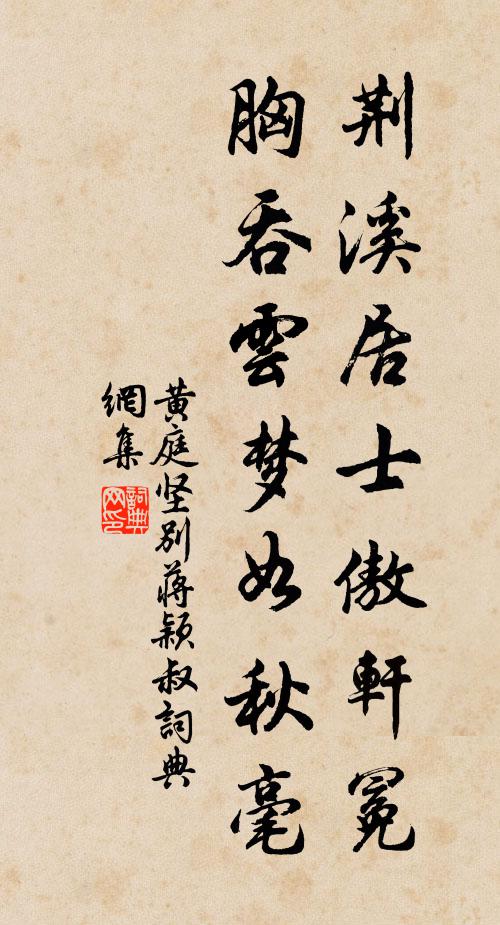 荆溪居士傲軒冕
胸吞雲梦如秋毫
黄庭坚别蒋颖叔詞典
網集
詞典
网印